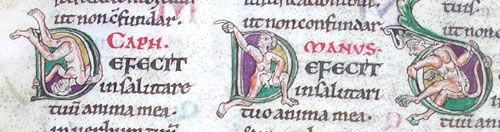 ut non cfundar.
CAPH.
DEFECIT
in salutare
tuū anima mea.
in uerbum tuū
ut non confundar.
MANUS.
DEFECIT
in salutari
tuo anima mea.
tuis.
ut non